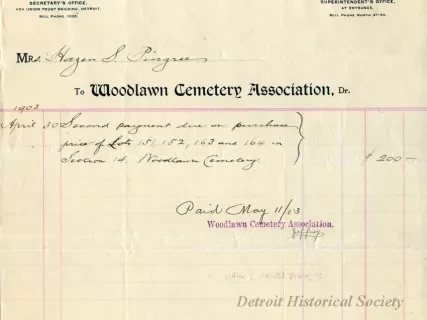 SECRETARY'S OFFICE,
UNION TRUST BUILDING, DETROIT
BELL PHONE
SUPERINTENDENT'S OFFICE,
AT ENTRANCE.
BELL PHONE NORTH
MRS. Hazen S. Pingree
To Woodlawn Cemetery Association, Dr.
1903
April 30 Second payment due on purchase
price of Lots 151, 152, 163 and 164 in
Section 14. Woodlawn Cemetery. $ 200 —
Paid May 11/03
Woodlawn Cemetery Association.
Detroit Historical Society